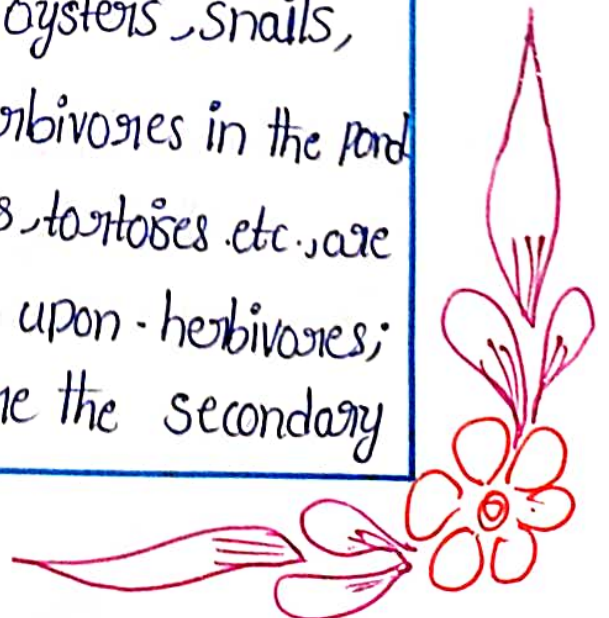 oysters, snails,
rbivores in the pond
s, tortoises etc., are
upon - herbivores;
re the secondary